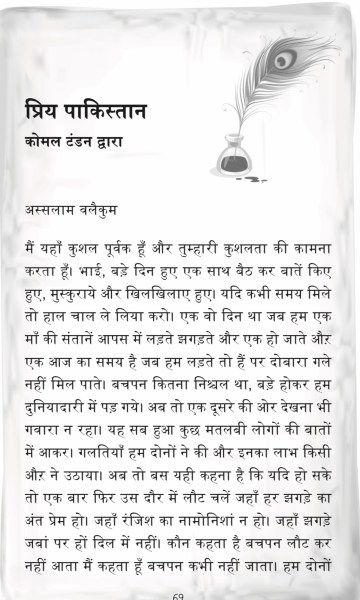 प्रिय पाकिस्तान
कोमल टंडन द्वारा
अस्सलाम वलैकुम
मैं यहाँ कुशल पूर्वक हूँ और तुम्हारी कुशलता की कामना
करता हूँ। भाई, बड़े दिन हुए एक साथ बैठ कर बातें किए
हुए, मुस्कुराये और खिलखिलाए हुए। यदि कभी समय मिले
तो हाल चाल ले लिया करो। एक वो दिन था जब हम एक
माँ की संतानें आपस में लड़ते झगड़ते और एक हो जाते और
एक आज का समय है जब हम लड़ते तो हैं पर दोबारा गले
नहीं मिल पाते। बचपन कितना निश्चल था, बड़े होकर हम
दुनियादारी में पड़ गये। अब तो एक दूसरे की ओर देखना भी
गवारा न रहा। यह सब हुआ कुछ मतलबी लोगों की बातों
में आकर। गलतियाँ हम दोनों ने की और इनका लाभ किसी
और ने उठाया। अब तो बस यही कहना है कि यदि हो सके
तो एक बार फिर उस दौर में लौट चलें जहाँ हर झगड़े का
अंत प्रेम हो। जहाँ रंजिश का नामोनिशां न हो। जहाँ झगड़े
जबां पर हों दिल में नहीं। कौन कहता है बचपन लौट कर
नहीं आता मैं कहता हूँ बचपन कभी नहीं जाता। हम दोनों
69